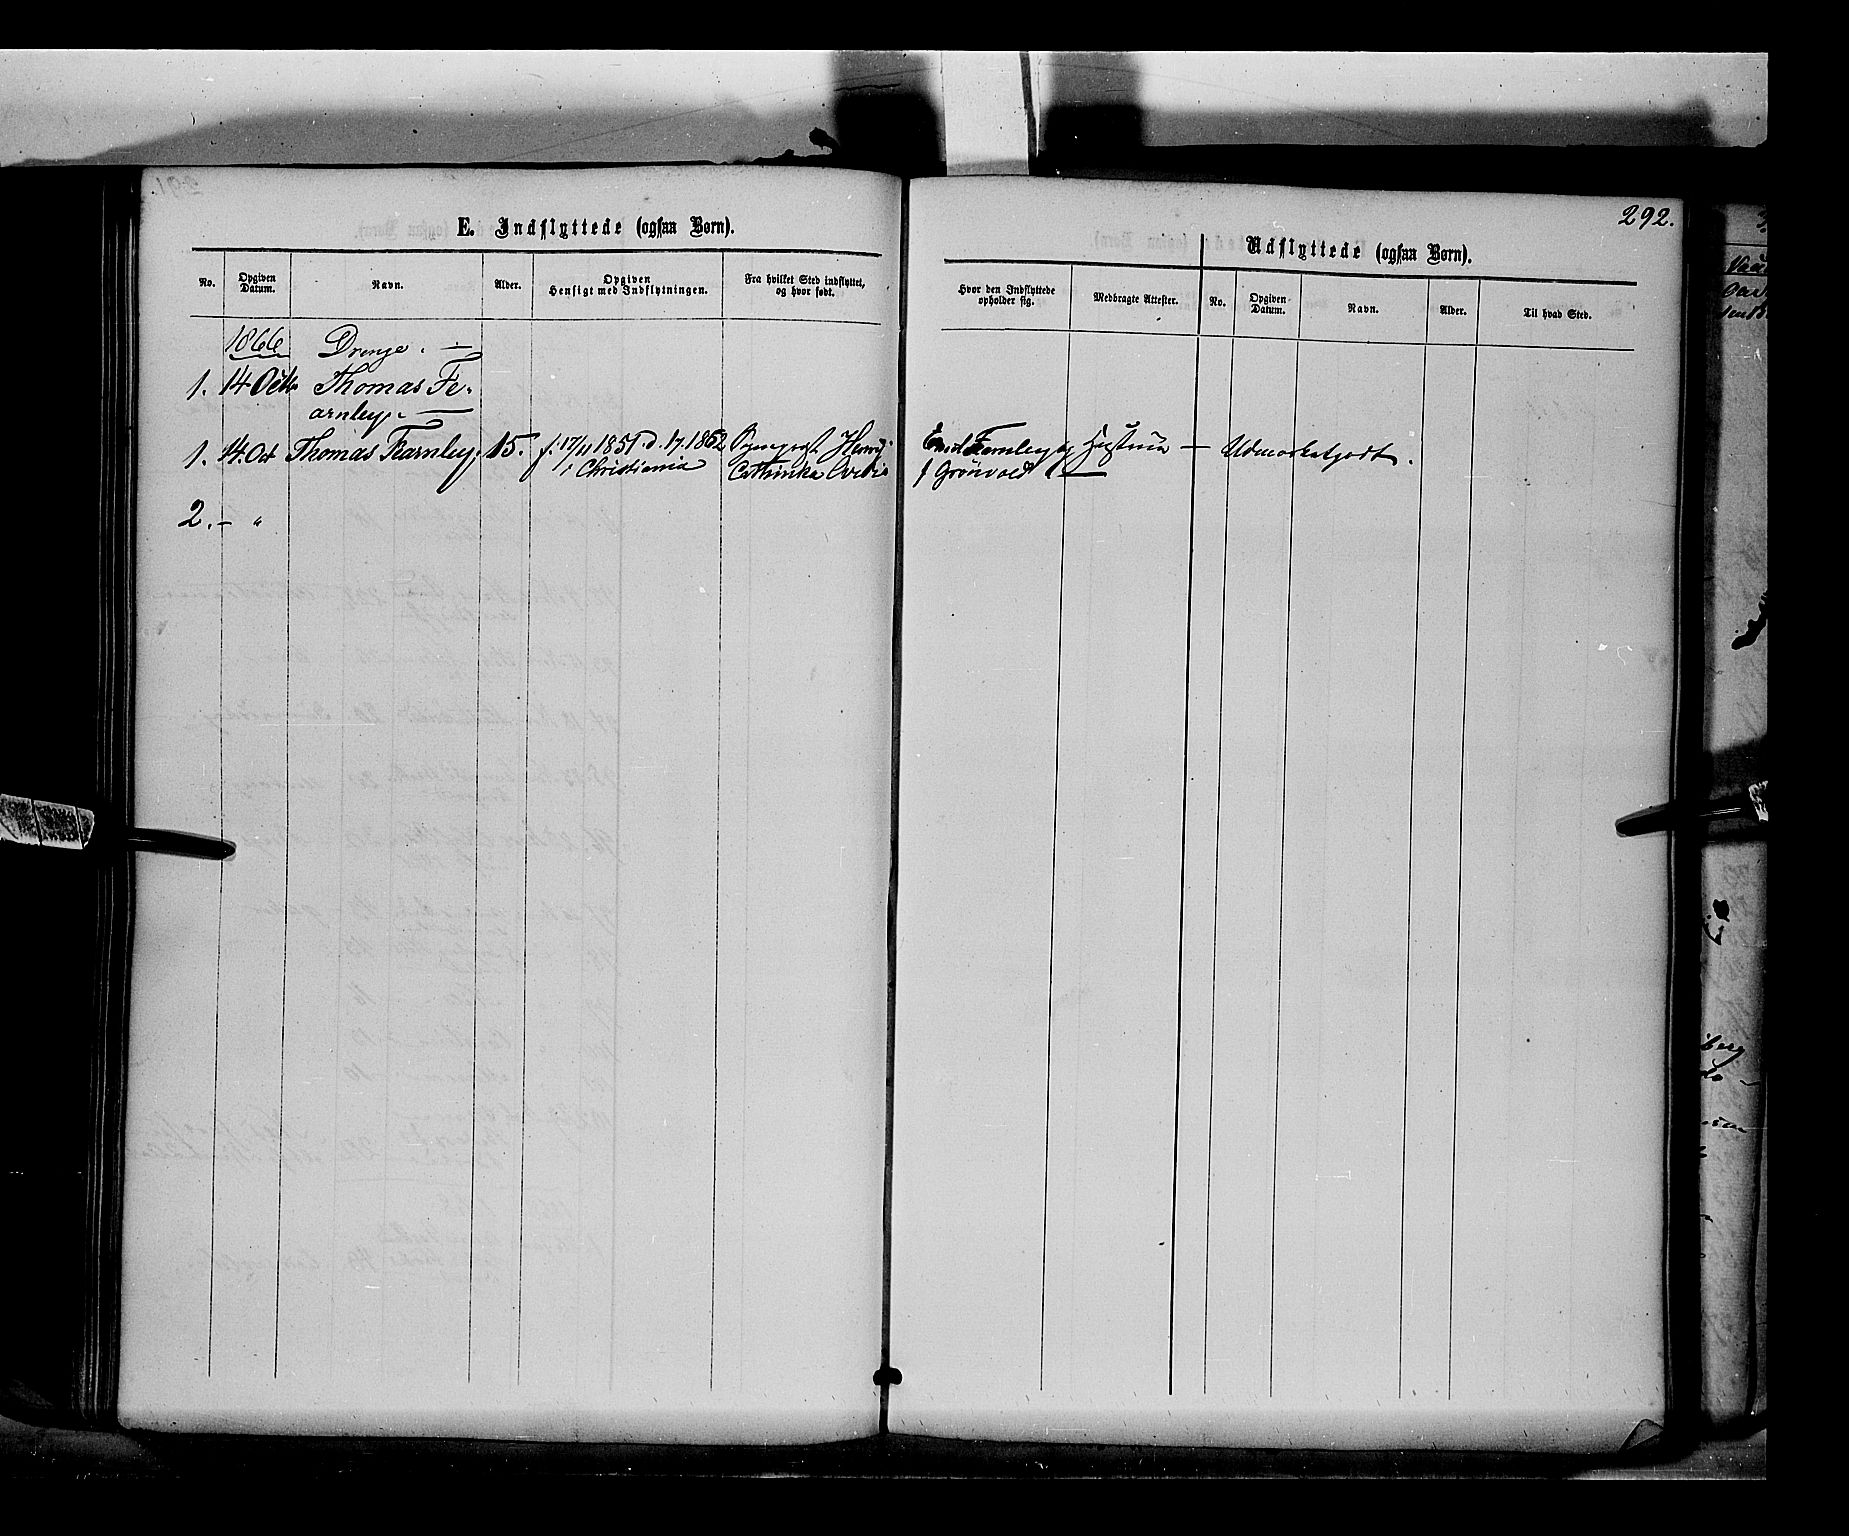 292.
E. Indflyttede (ogsaa Børn).
Udflyttede (ogsaa Børn).
No. Opgiven Datum. Navn. Alder. Opgiven Hensigt med Indflytningen. Fra hvilket Sted indflyttet, og hvor født. Hvor den Indflyttede opholder sig. Medbragte Attester. No. Opgiven Datum. Navn. Alder. Til hvad Sted.
1866 Drenge. —
1. 14 Octb Thomas Fe-
arnley. —
1. 14. Oct Thomas Fearnley. 15. f. 17/4 1851 d. 17. 1852 Henrij Fearnley og Hustru — Udmærketgodt.
i Christiania Cathinka Grönvold —
2. — "